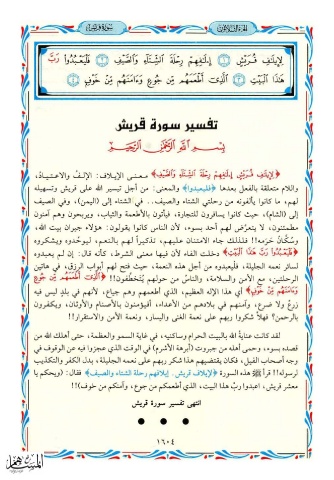 الجزء الثلاثون
سورة قريش
لِإِيلَافِ قُرَيْشٍ ۝١ إِۦلَافِهِمْ رِحْلَةَ الشِّتَاءِ وَالصَّيْفِ ۝٢ فَلْيَعْبُدُوا رَبَّ
هَٰذَا الْبَيْتِ ۝٣ الَّذِي أَطْعَمَهُم مِّن جُوعٍ وَآمَنَهُم مِّنْ خَوْفٍ ۝٤
تفسير سورة قريش
بسم الله الرحمن الرحيم
﴿لِإِيلَافِ قُرَيْشٍ إِيلَافِهِمْ رِحْلَةَ الشِّتَاءِ وَالصَّيْفِ﴾ معنى الإيلاف: الإلفُ والاعتيادُ،
واللام متعلقة بالفعل بعدها ﴿فليعبدوا﴾ والمعنى: من أجل تيسير الله على قريش وتسهيله
لهم، ما كانوا يألفونه من رحلتي الشتاء والصيف.. في الشتاء إلى (اليمن)، وفي الصيف
إلى (الشام)، حيث كانوا يسافرون للتجارة، فيأتون بالأطعمة والثياب، ويربحون وهم آمنون
مطمئنون، لا يتعرَّض لهم أحد بسوء، لأن الناس كانوا يقولون: هؤلاء جيران بيت الله،
وسُكَّان حَرَمه!! فلذلك جاء الامتنان عليهم، تذكيراً لهم بالنعم، ليوحّدوه ويشكروه
﴿فَلْيَعْبُدُوا رَبَّ هَذَا الْبَيْتِ﴾ دخلت الفاء لأن فيها معنى الشرط، كأنه قال: إن لم يعبدوه
لسائر نعمه الجليلة، فليعبدوه من أجل هذه النعمة، حيث فتح لهم أبواب الرزق، في هاتين
الرحلتين، مع الأمن والسلامة، والناسُ من حولهم يُتخطَّفون!! ﴿الَّذِي أَطْعَمَهُم مِّن جُوعٍ
وَآمَنَهُم مِّنْ خَوْفٍ﴾ أي هذا الإله العظيم، الذي أطعمهم وهم جياع، لأنهم في بلدٍ ليس فيه
زرعٌ ولا ضرع، وآمنهم في بلادهم من الأعداء، أفيؤمنون بالأصنام والأوثان، ويكفرون
بالرحمن؟ فهلاَّ شكروا ربهم على نعمة الغنى واليسار، ونعمة الأمن والاستقرار!!
لقد كانت عنايةُ الله بالبيت الحرام وساكنيه، في غاية السمو والعظمة، حتى أهلك الله من
قصده بسوء، وحمى أهله من جبروت (أبرهة الأشرم) في الوقت الذي عجزوا فيه عن الوقوف في
وجه أصحاب الفيل، فكان يقتضيهم هذا شكر ربهم على نعمه الجليلة، بدل الكفر والتكذيب
لرسوله!! قرأ ﷺ هذه السورة ﴿لإيلاف قريش. إيلافهم رحلة الشتاء والصيف﴾ فقال: (ويحكم يا
معشر قريش، اعبدوا ربَّ هذا البيت، الذي أطعمكم من جوع، وآمنكم من خوف)!!
انتهى تفسير سورة قريش
١٦٠٤